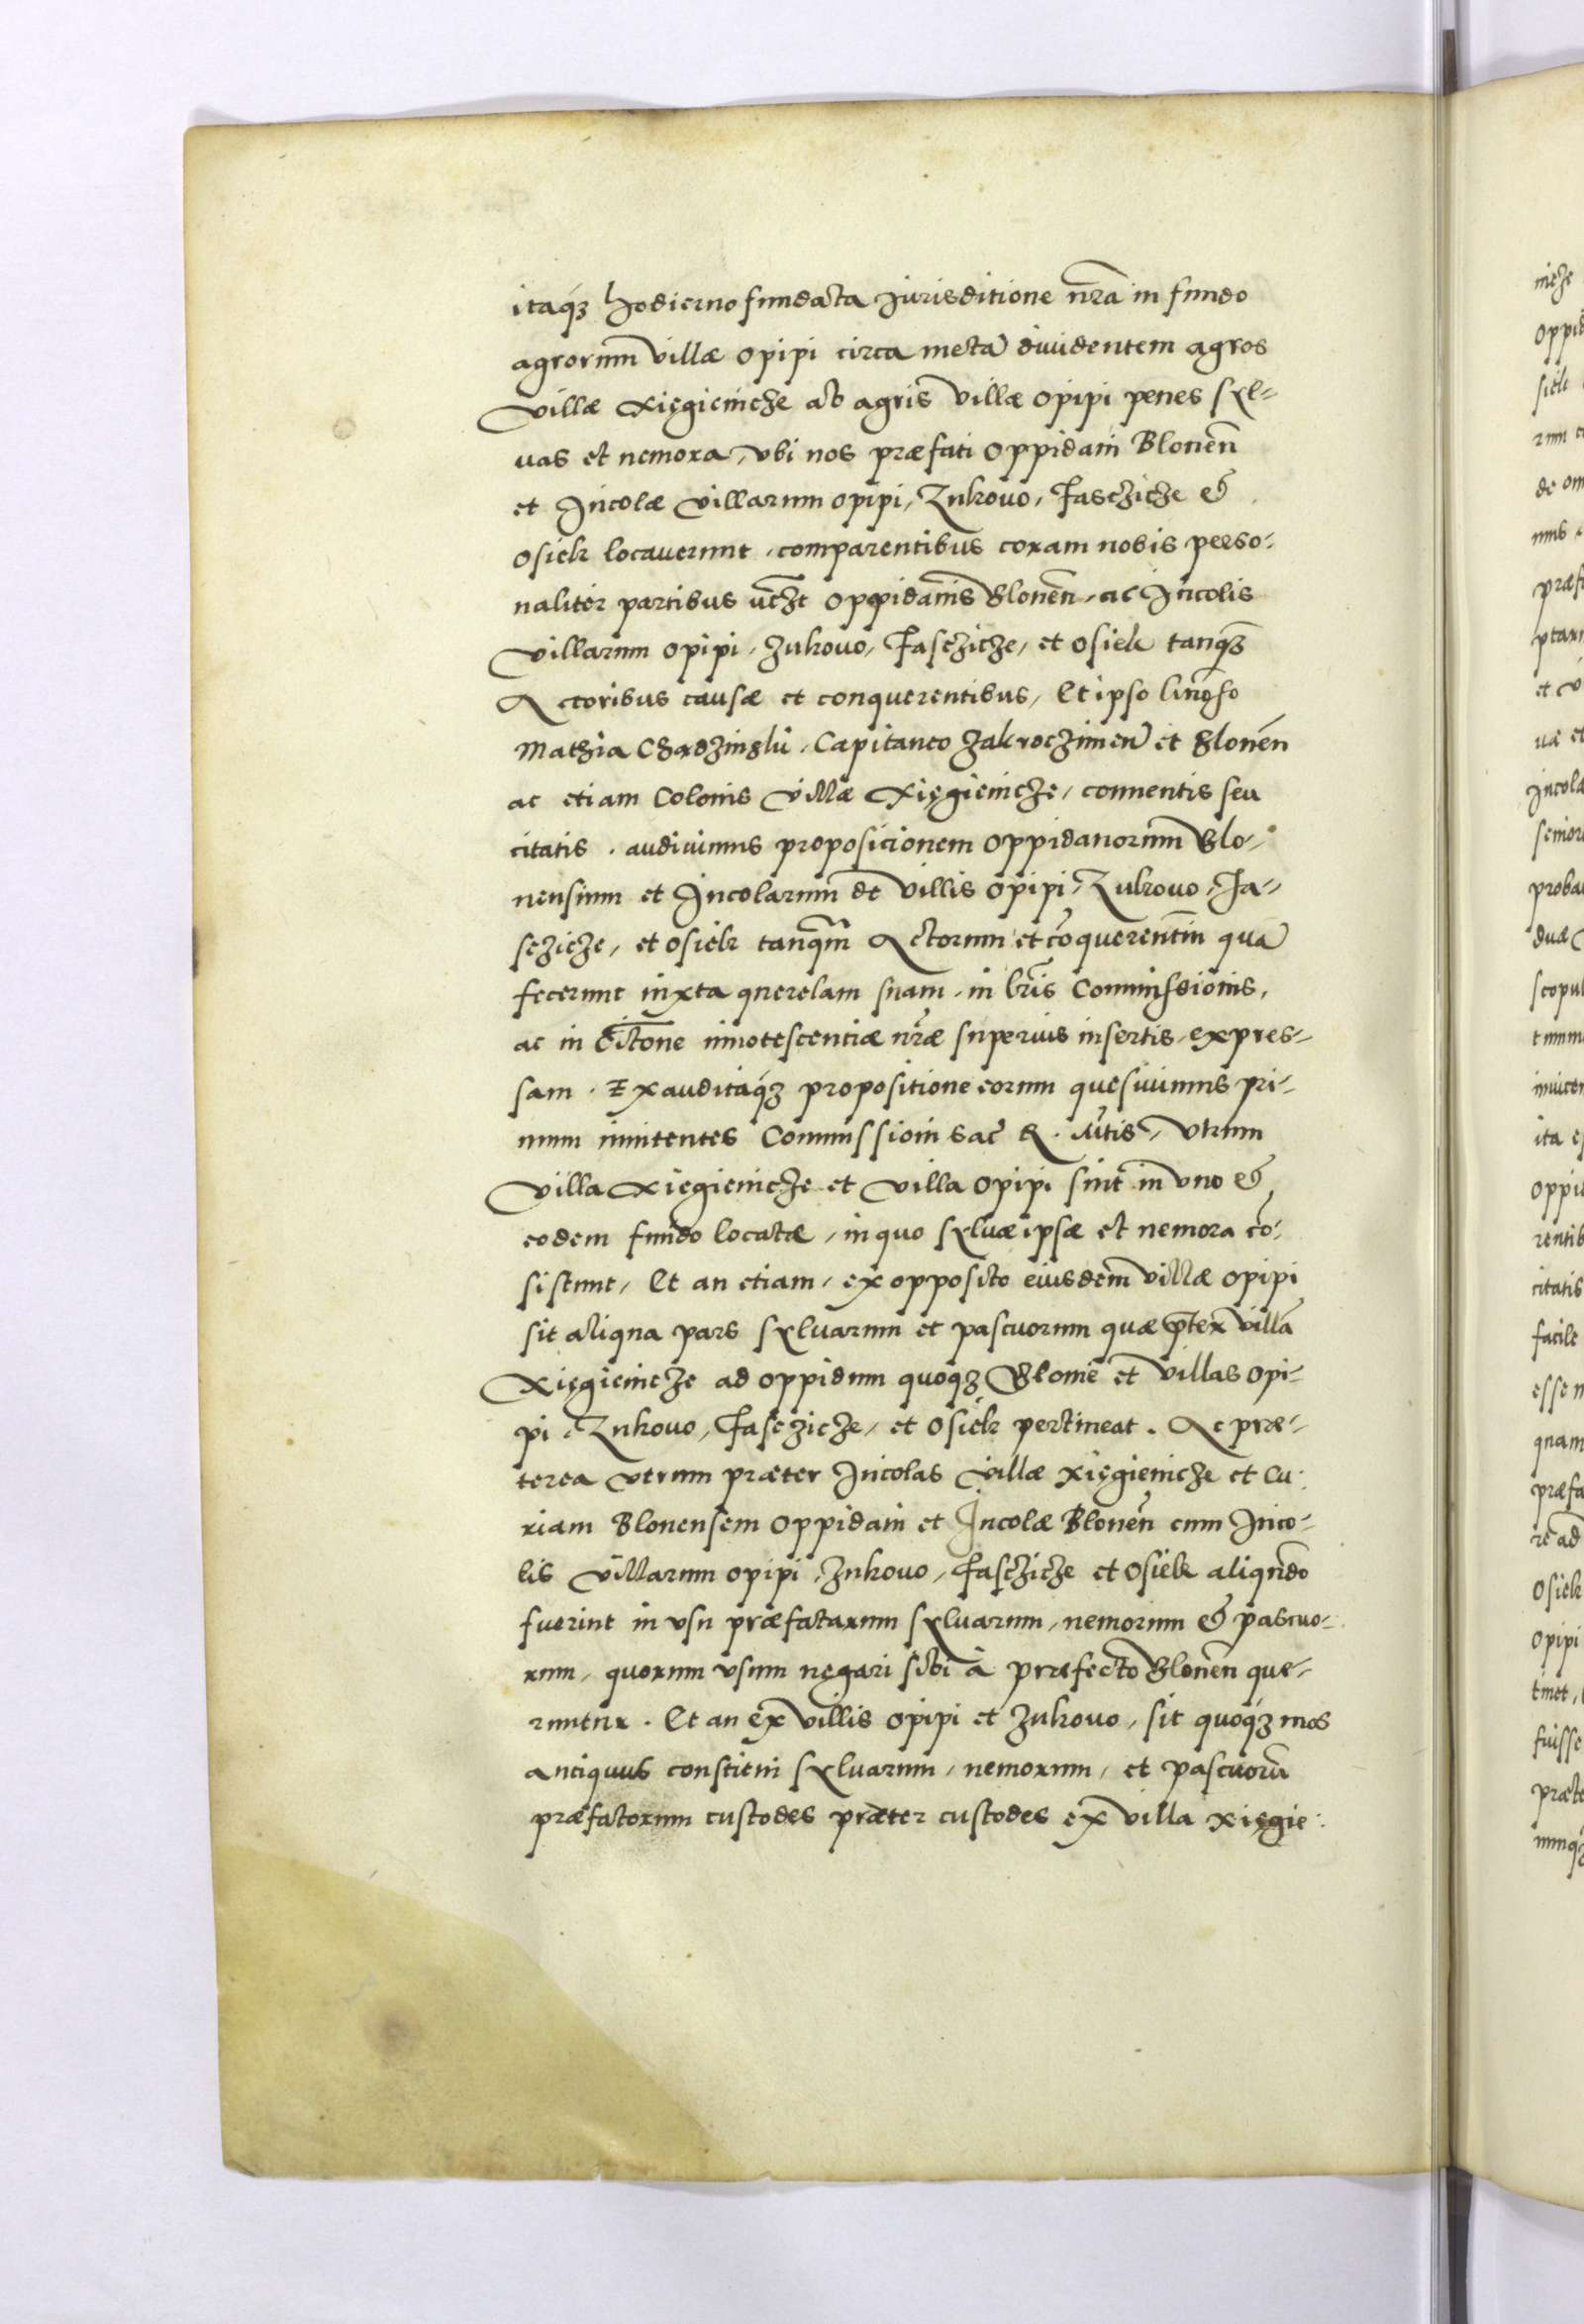 itaq́ꝫ hodierno fundata Jurisditione nr̃a in fundo
agrorum villæ opipi circa metã diuidentem agros
villæ Xięgieniche ab agris villæ opipi penes syl-
uas et nemora, vbi nos præfati Oppidani Blonen̄
et Incolæ villarum opipi, Zukouo, Fascziche &
osiek locauerunt, comparentibus coram nobis perso-
naliter partibus vcꝫt oppidanis Blonen̄, ac Incolis
villarum opipi, Zukouo, Fascziche, et osiek tanq̃ꝫ
Actoribus causæ et conquerentibus, Et ipso
Mathia Chądzinsky. Capitaneo Zakroczimeñ et Blonen̄
ac etiam Colonis villæ Xięgieniche, conuentis seu
citatis. audiuimus proposicionem oppidanorum Blo-
nensium et Incolarum de villis opipi, Zukouo, Fa-
scziche, et osiek tanq̃m Actorum et cõquerentiu quã
fecerunt iuxta querelam suam, in lr̃is Commissionis,
ac in Citõne innotescentiæ nr̃æ superius insertis, expres-
sam. Exauditaq́ꝫ propositione eorum quesiuimus pri-
mum innitentes Commissioni Sac̃ R. M̃tis, vtrum
villa Xięgieniche et villa opipi sint in vno &
eodem fundo locatæ, in quo syluæ ipsæ et nemora cõ-
sistunt, Et an etiam, ex opposito eiusdem villæ opipi
sit aliqua pars syluarum et pascuorum quæ p̃ter villã
Xięgieniche ad oppidum quoq́ꝫ Blonie et villas opi-
pi, Zukouo, Fascziche, et osiek pertineat. Ac præ-
terea vtrum præter Incolas villæ Xięgieniche et Cu-
riam Blonensem oppidani et Incolæ Blonen̄ cum Inco-
lis villarum opipi, Zukouo, Fascziche et osiek aliqñdo
fuerint in vsu præfatarum syluarum, nemorum & pascuo-
rum, quorum vsum negari sibi à præfecto Blonen̄ que-
runtur. Et an ex villis opipi et Zukouo, sit quoq́ꝫ mos
antiquus constitui syluarum, nemorum, et pascuorũ
præfatorum custodes præter custodes ex villa Xięgie-